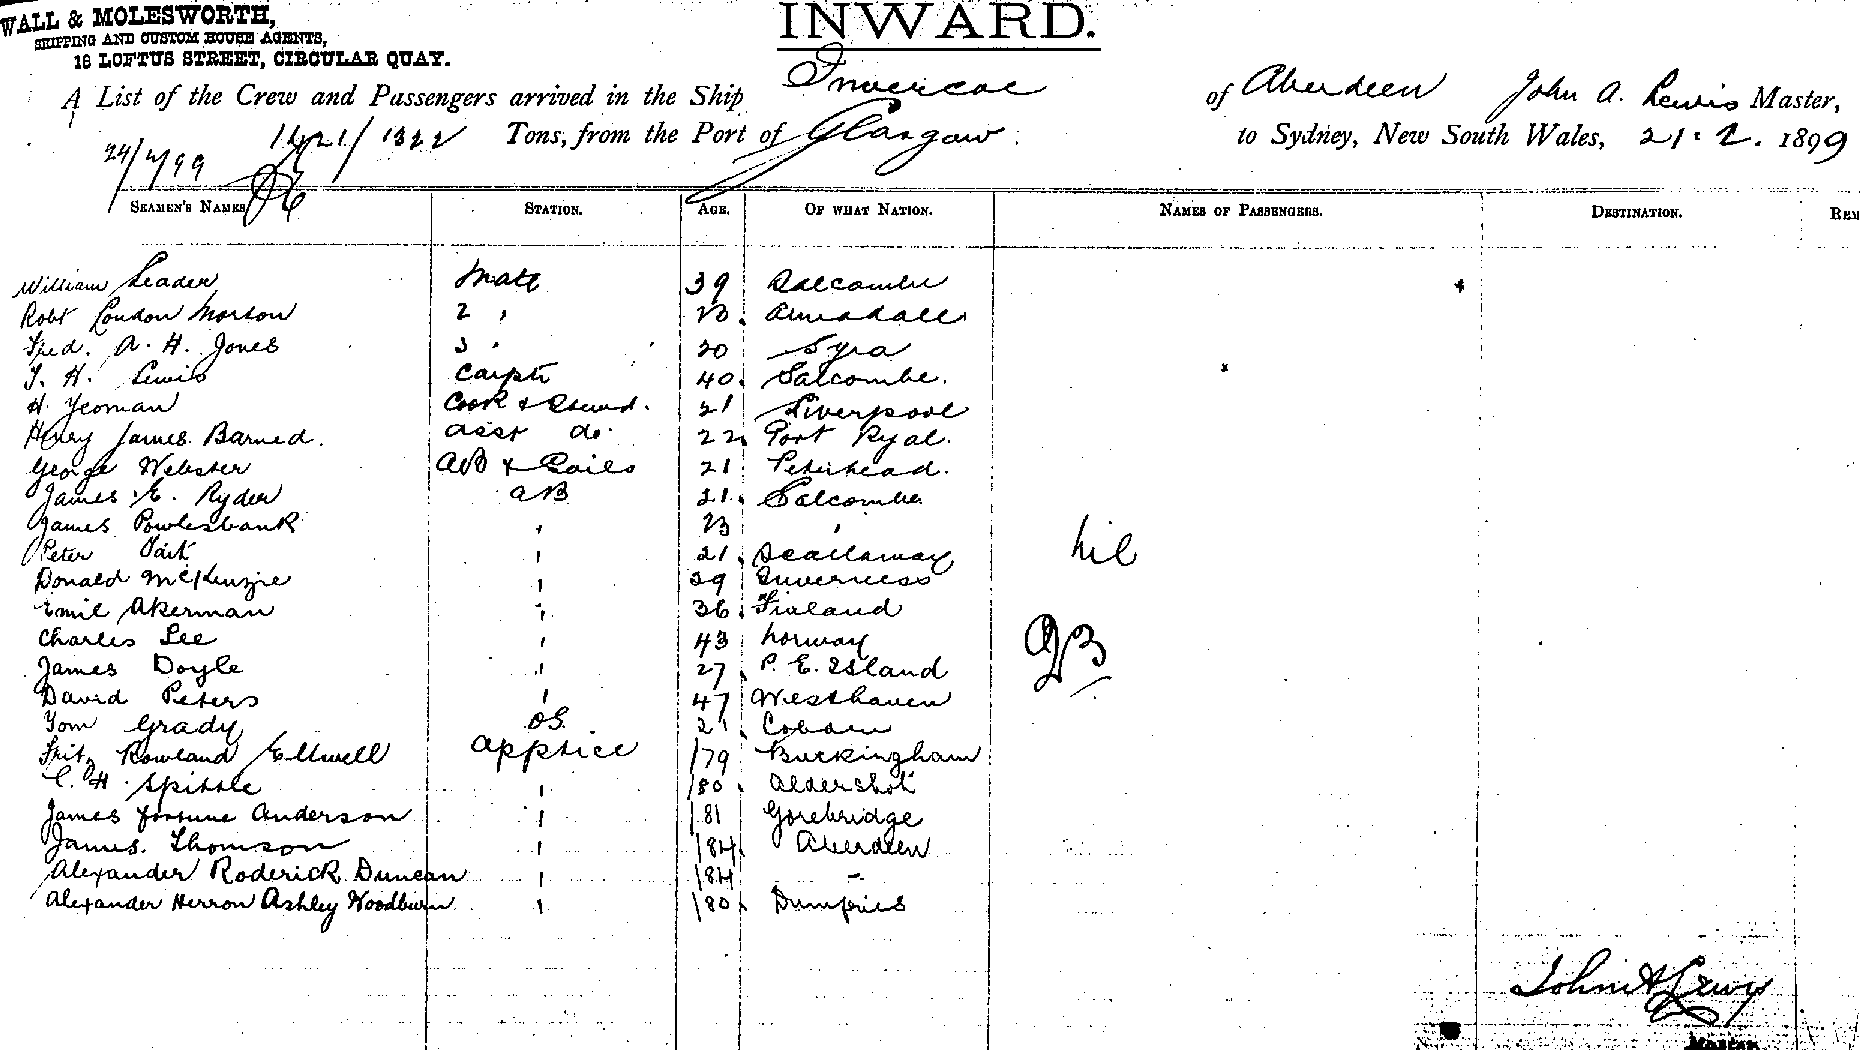 WALL & MOLESWORTH,
SHIPPING AND CUSTOM HOUSE AGENTS,
18 LOFTUS STREET, CIRCULAR QUAY.
INWARD.
A List of the Crew and Passengers arrived in the Ship Invercoe of Aberdeen John A. Lewis Master,
1421/1322 Tons, from the Port of Glasgow to Sydney, New South Wales, 21.2.1899
24/4/99
SEAMEN'S NAMES STATION. AGE. OF WHAT NATION. NAMES OF PASSENGERS. DESTINATION. REM
William Leader Mate 39 Salcombe
Robt London Morson 2 " 23 Ainsdale
Fred. A. H. Jones 3 " 20 Syra
J. H. Lewis Carptr 40 Salcombe.
H. Yeoman Cook & Steward. 21 Liverpool
Henry James Barned. asst do. 22 Port Ryal.
George Webster AB & Sails 21 Peterhead.
James E. Ryder AB 21 Salcombe
James Powlesbank " 23 "
Peter Tait " 21 Scallaway nil
Donald McKenzie " 29 Inverness
Emil Akerman " 36 Finland
Charles Lee " 43 Norway
James Doyle " 27 P. E. Island
David Peters " 47 Westhaven
Tom Grady OS. 21
Fritz Rowland Ellwell apptice /79 Buckingham
C. H. Spittle " /80 Aldershot
James Fortune Anderson " /81 Gorebridge
James Thomson " /84 Aberdeen
Alexander Roderick Duncan " /84 "
Alexander Herron Ashley Woodburn " /80 Dumfries
John A Lewis
Master